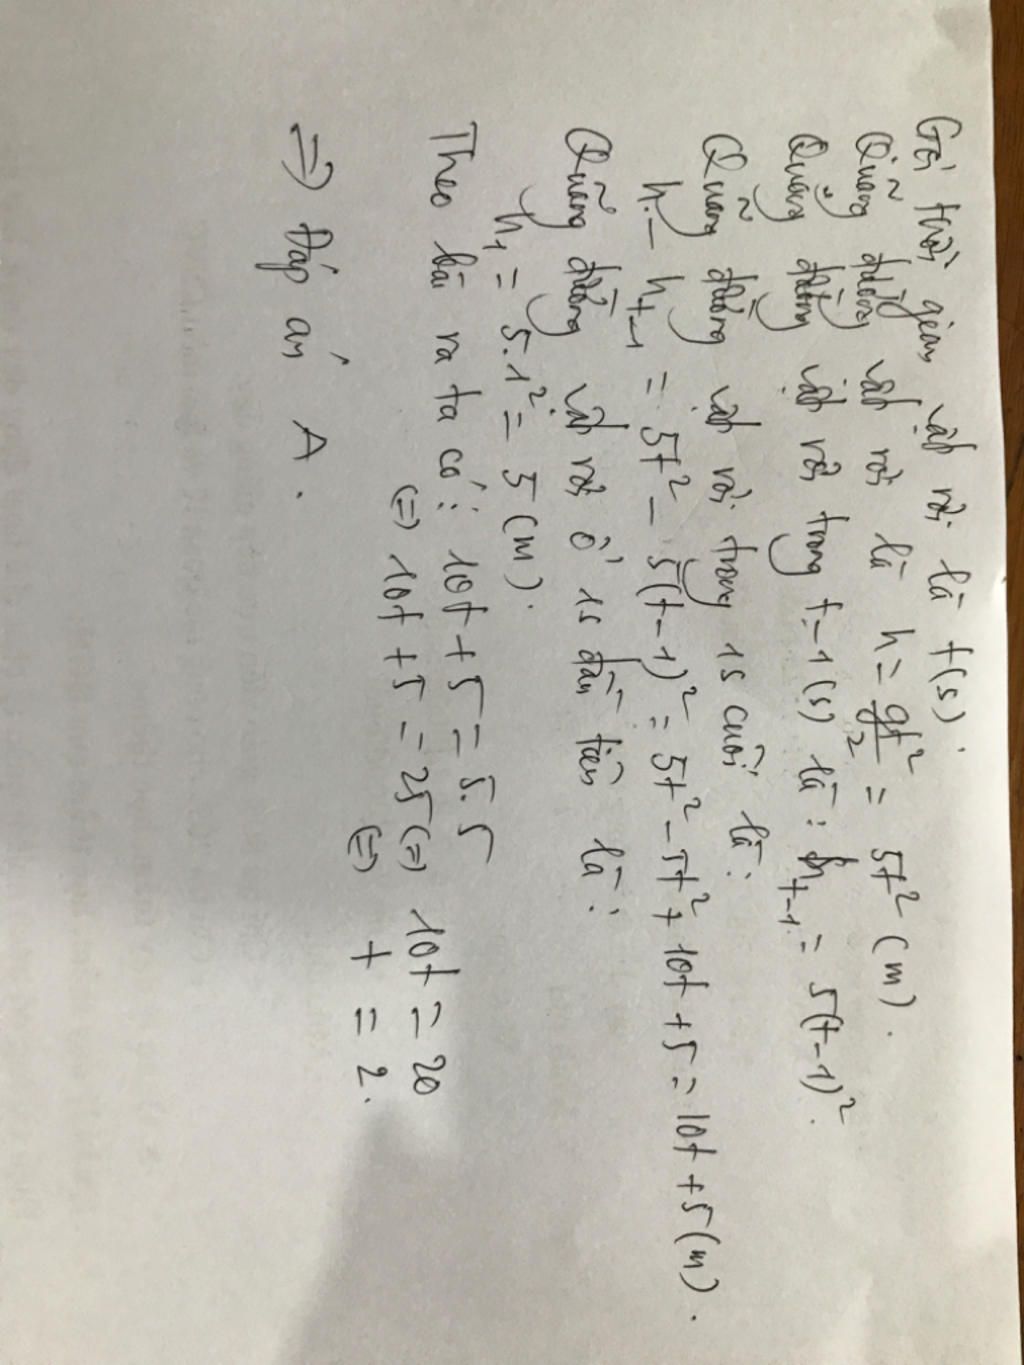 Gọi thời gian vật rơi là t(s).
Quãng đường vật rơi là h = gt²/2 = 5t² (m).
Quãng đường vật rơi trong t-1(s) là: h_{t-1} = 5(t-1)².
Quãng đường vật rơi trong 1s cuối là:
h - h_{t-1} = 5t² - 5(t-1)² = 5t² - 5t² + 10t + 5 = 10t + 5 (m).
Quãng đường vật rơi ở 1s đầu tiên là:
h₁ = 5.1² = 5 (m).
Theo bài ra ta có: 10t + 5 = 5.5
(=) 10t + 5 = 25 (=) 10t = 20
(=) t = 2.
=> Đáp án A.